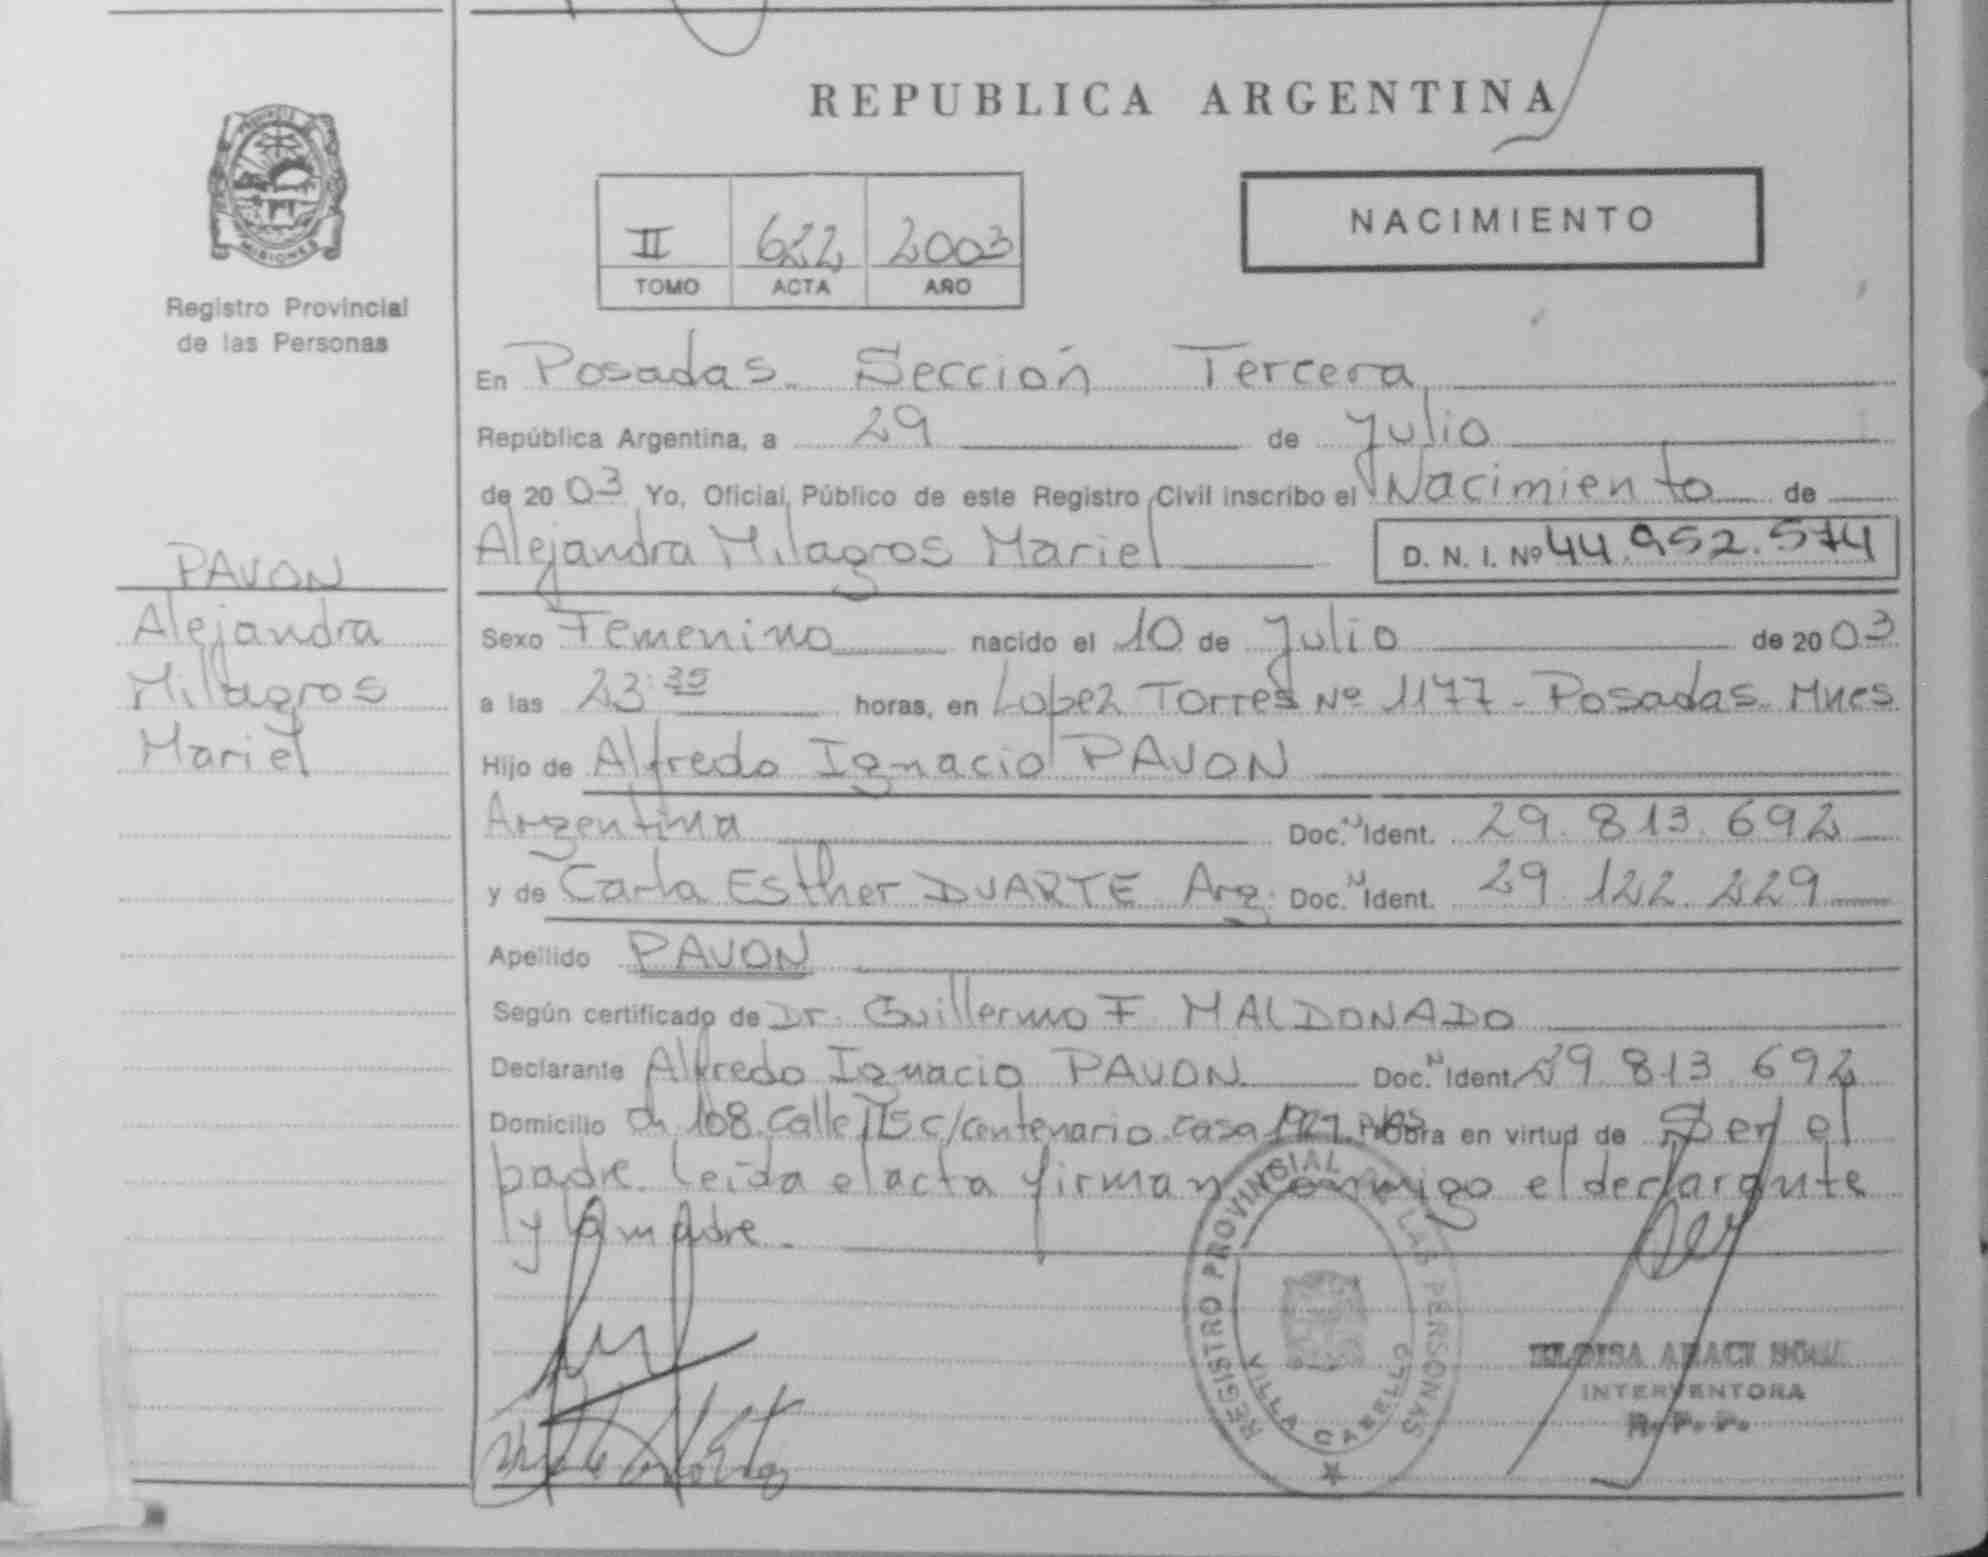 REPUBLICA ARGENTINA
MISIONES
Registro Provincial
de las Personas
II 622 2003
TOMO ACTA AÑO
NACIMIENTO
PAVON
Alejandra
Milagros
Mariel
En Posadas Sección Tercera
República Argentina, a 29 de Julio
de 2003 Yo, Oficial Público de este Registro Civil inscribo el Nacimiento de
Alejandra Milagros Mariel D. N. I. Nº 44.952.574
Sexo Femenino nacido el 10 de Julio de 2003
a las 23:35 horas, en Lopez Torres Nº 1177 - Posadas Mnes
Hijo de Alfredo Ignacio PAVON
Argentina Doc. N Ident. 29.813.692
y de Carla Esther DUARTE Arg. Doc. N Ident. 29.122.229
Apellido PAVON
Según certificado de Dr. Guillermo F MALDONADO
Declarante Alfredo Ignacio PAVON Doc. N Ident. 29 813 692
Domicilio Ch 108 Calle 115 c/centenario casa 1927 Obra en virtud de Ser el
padre. Leida el acta firman conmigo el declarante
y la madre.
REGISTRO PROVINCIAL DE LAS PERSONAS
VILLA CABELLO
INTERVENTORA
R. P. P.